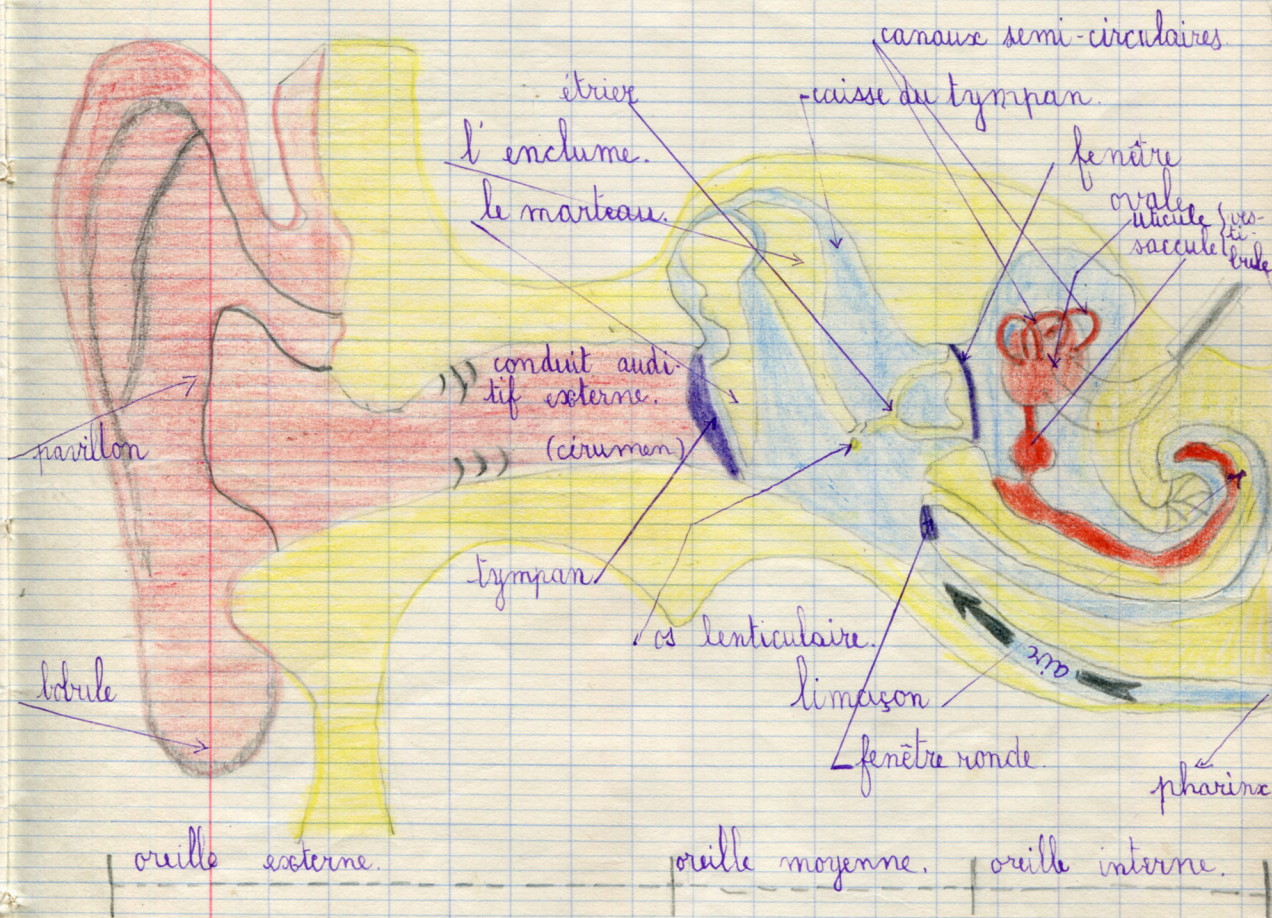 canaux semi-circulaires.
étrier
caisse du tympan.
l'enclume.
fenêtre
ovale
le marteau.
uticule
saccule
ves-
ti-
bule
conduit audi-
tif externe.
(cérumen)
pavillon
tympan
os lenticulaire.
air
limaçon
bobule
fenêtre ronde.
pharinx
oreille externe.
oreille moyenne.
oreille interne.